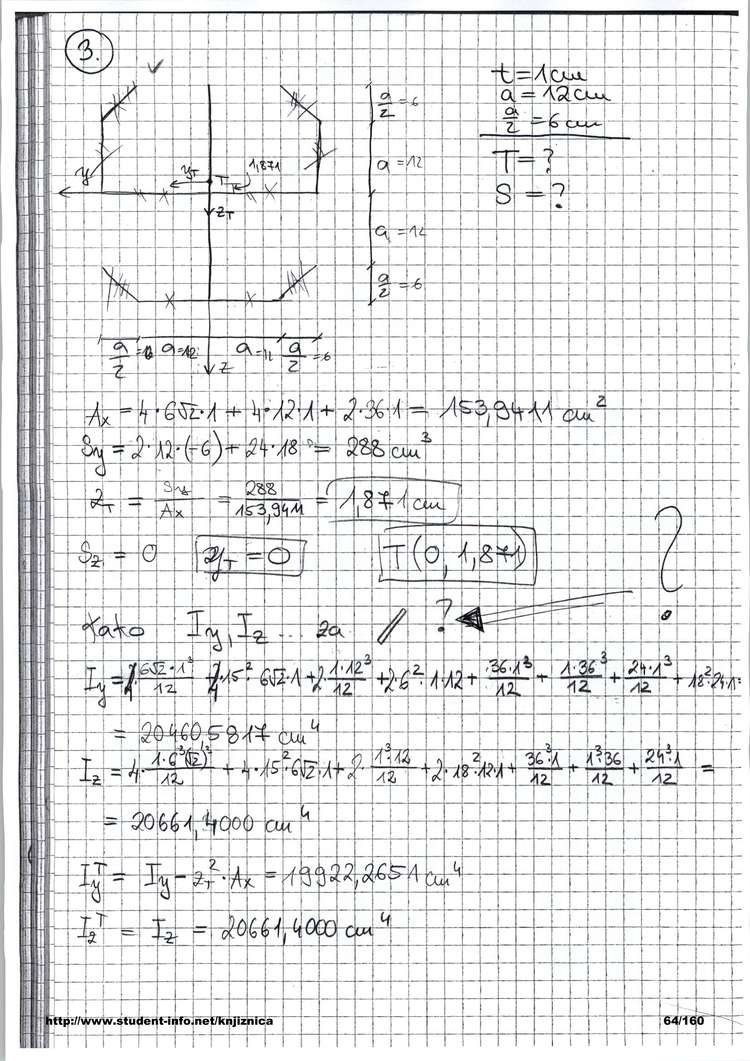 3.
t = 1 cm
a = 12 cm
a/2 = 6 cm
T = ?
S = ?
a/2 = 6
a = 12
a = 12
a/2 = 6
1,871
y
yT
T
zT
a/2 = 6 a = 12 a = 12 a/2 = 6
z
Ax = 4·6√2·1 + 4·12·1 + 2·36·1 = 153,9411 cm²
Sy = 2·12·(-6) + 24·18 = 288 cm³
zT = Sy/Ax = 288/153,9411 = 1,871 cm
Sz = 0 yT = 0 T(0, 1,871)
?
Kako Iy, Iz ... za // ?
Iy = 4·6√2·1³/12 + 4·15²·6√2·1 + 2·1·12³/12 + 2·6²·1·12 + 36·1³/12 + 1·36³/12 + 24·1³/12 + 18²·24·1 =
= 20460,5817 cm⁴
Iz = 4·1·6³(√2)³/12 + 4·15²·6√2·1 + 2·1³·12/12 + 2·18²·12·1 + 36³·1/12 + 1³·36/12 + 24³·1/12 =
= 20661,4000 cm⁴
IyT = Iy - zT²·Ax = 19922,2651 cm⁴
IzT = Iz = 20661,4000 cm⁴
http://www.student-info.net/knjiznica 64/160